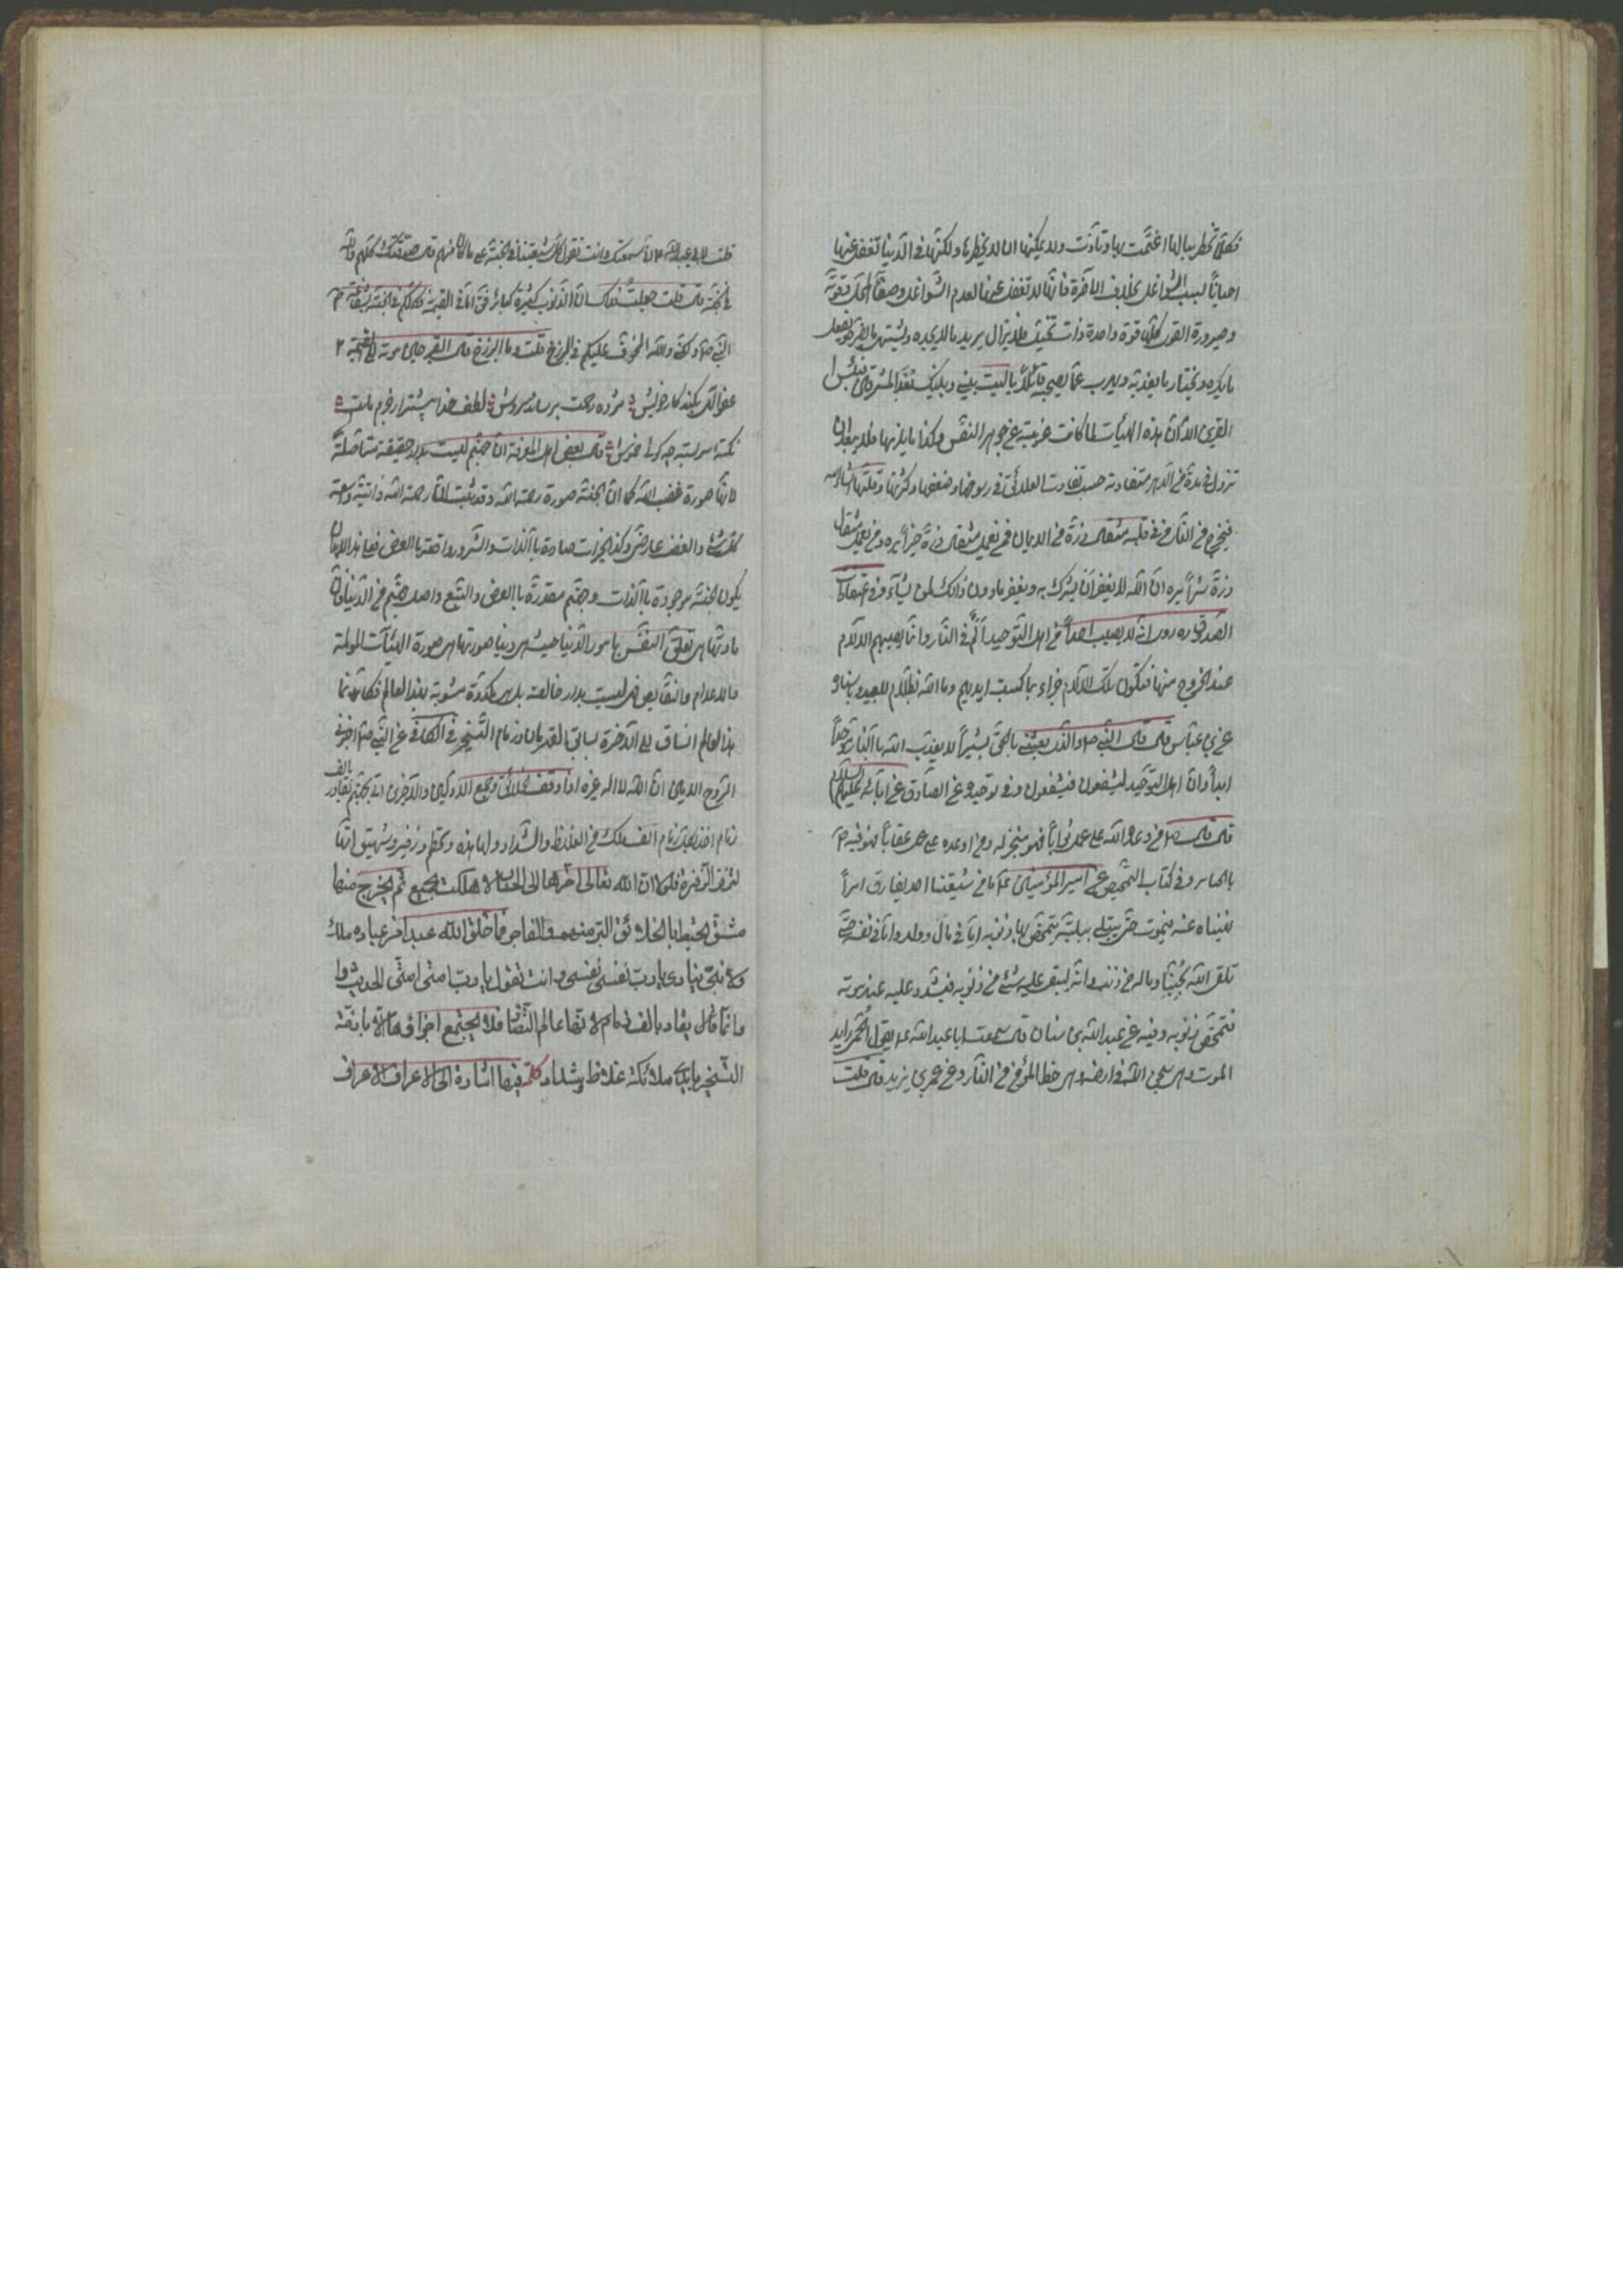 فكلما تخطر ببالها اغتمت بها وتأذت ولا يمكنها ان لا يخطرها ولكنها في الدنيا تغفل عنها
احيانا لسبب الشواغل بخلاف الآخرة فانها لا تغفل عنها لعدم الشواغل وصفاء المحل وقوته
وصيرورة القوى كلها قوة واحدة ذات تخيل فلا يزال يريد ما لا يجده ويشتهي ما يضره ويفعل
ما يكرهه ويختار ما يعذبه ويهرب عما يصحبه قائلا يا ليت بيني وبينك بعد المشرقين فبئس
القرين الا ان هذه الهيئات لما كانت غريبة عن جوهر النفس وكذا ما يلزمها فلا يبعد ان
تزول في مدة من الدهر متفاوتة حسب تفاوت العلائق في رسوخها وضعفها وكثرتها وقلتها ان شاء الله
فيخرج من النار من في قلبه مثقال ذرة من الايمان فمن يعمل مثقال ذرة خيرا يره ومن يعمل مثقال
ذرة شرا يره ان الله لا يغفر ان يشرك به ويغفر ما دون ذلك لمن يشاء وفي اعتقادات
الصدوق ره روي انه لا يصيب احدا من اهل التوحيد الم في النار وانما يصيبهم الآلام
عند الخروج منها فتكون تلك الآلام جزاء بما كسبت ايديهم وما الله بظلام للعبيد
عن ابن عباس قال قال النبي ص والذي بعثني بالحق بشيرا لا يعذب الله بالنار موحدا
ابدا وان اهل التوحيد ليشفعون فيشفعون وفي توحيده عن الصادق عن آبائه عليهم السلام
قال قال ص من وعده الله على عمل ثوابا فهو منجز له ومن اوعده على عمل عقابا فهو فيه
بالخيار وفي كتاب التمحيص عن امير المؤمنين ع ما من شيعتنا احد يقارف امرا
نهيناه عنه فيموت حتى يبتلى ببلية تمحص بها ذنوبه اما في مال او ولد واما في نفسه حتى
تلقى الله محبنا وما له من ذنب وانه ليبقى عليه شيء من ذنوبه فيشدد عليه عند موته
فتمحص ذنوبه وفيه عن عبد الله بن سنان قال سمعت ابا عبد الله ع يقول الحمى رائد
الموت وهي سجن الله في ارضه وهي حظ المؤمن من النار وعن عمر بن يزيد قال قلت
قلت لابي عبد الله ع اني سمعتك وانت تقول كل شيعتنا في الجنة على ما كان منهم قال صدقتك كلهم والله
في الجنة قال قلت جعلت فداك ان الذنوب كثيرة كبائر فقال اما في القيمة فكلكم في الجنة بشفاعة
النبي ص ولكني والله اتخوف عليكم في البرزخ قلت وما البرزخ قال القبر حين موته الى القيمة
عفو الهى بكند كار خويش مژده رحمت برساند سروش لطف خدا بيشتر از جرم ماست
نكته سربسته چه گوئى خموش قال بعض اهل المعرفة ان جهنم ليست بدار حقيقية متأصلة
لانها صورة غضب الله كما ان الجنة صورة رحمة الله وقد ثبت ان رحمة الله ذاتية وسعة
كل شيء والغضب عارض وكذا الخيرات صادرة بالذات والشرور واقعة بالعرض فعلى هذا لابد ان
يكون الجنة موجودة بالذات وجهنم مقدرة بالعرض والتبع واصل جهنم من الدنيا فان
مادتها هي تعلق النفس بامور الدنيا حيث هي دنيا وصورتها هي صورة الهيئات المولمة
والاعدام والنقايص فهي ليست بدار خالصة بل هي مكدرة مشوبة بهذا العالم فكانها
هذا العالم انساق الى الآخرة بسائق القدر وزمام التسخير في الكافي عن النبي ص اخبرني
الروح الامين ان الله لا اله غيره اذا وقف الخلائق وجمع الاولين والآخرين اتى بجهنم تقاد بالف
زمام اخذ بكل زمام الف ملك من الغلاظ الشداد ولها هدة وتحطم وزفير وشهيق انها
لتزفر الزفرة فلولا ان الله تعالى اخرها الى الحساب لاهلكت الجميع ثم يخرج منها
عنق يحيط بالخلائق البر منهم والفاجر فما خلق الله عبدا من عباده ملك
ولا نبي ينادي يا رب نفسي نفسي وانت تقول يا رب امتي امتي الحديث
وانما قال يقاد بالف زمام لانها عالم التضاد فلا يجتمع اجزاؤها الا بازمة
التسخير بايدي ملائكة غلاظ شداد كلمة فيها اشارة الى الاعراف الاعراف